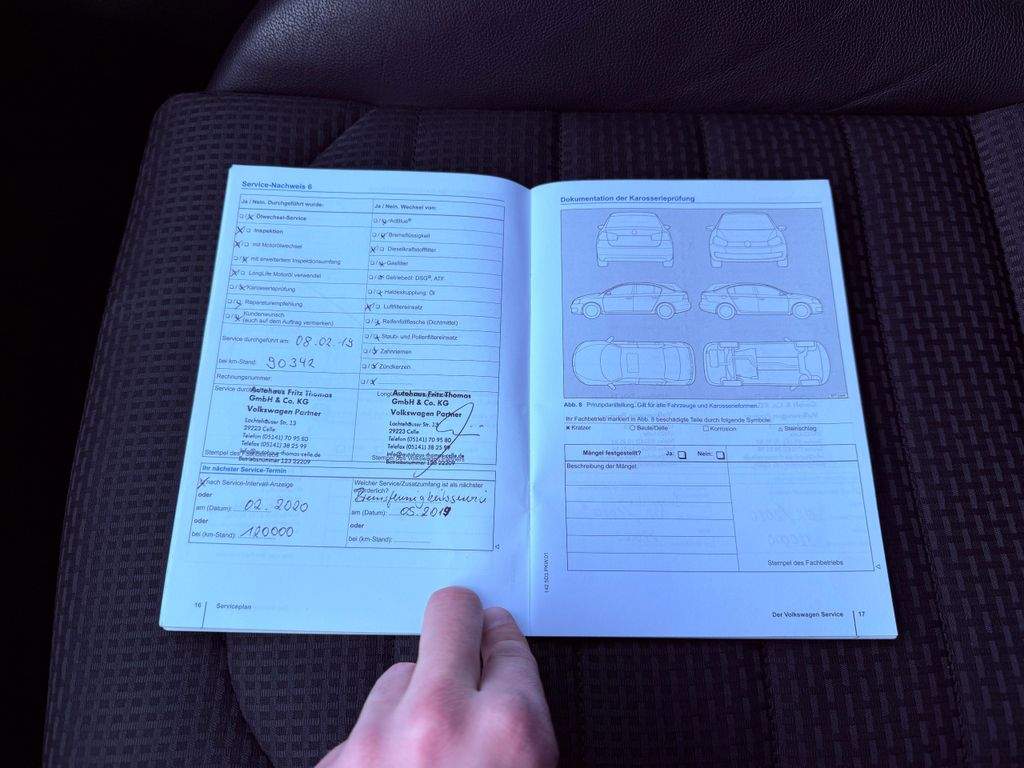 Service-Nachweis 6
Ja / Nein. Durchgeführt wurde:
Ölwechsel-Service
Inspektion
mit Motorölwechsel
mit erweitertem Inspektionsumfang
LongLife Motoröl verwendet
Karosserieprüfung
Reparaturempfehlung
Kundenwunsch
(auch auf dem Auftrag vermerken)
Service durchgeführt am: 08.02.19
bei km-Stand: 90342
Rechnungsnummer:
Service durch
Autohaus Fritz Thomas
GmbH & Co. KG
Volkswagen Partner
Lachtehäuser Str. 13
29223 Celle
Telefon (05141) 70 95 60
Telefax (05141) 38 25 99
info@autohaus-thomas-celle.de
Betriebsnummer 123 22209
Stempel des
Ja / Nein. Wechsel von:
AdBlue®
Bremsflüssigkeit
Dieselkraftstofffilter
Gasfilter
Getriebeöl: DSG®, ATF
Haldexkupplung: Öl
Luftfiltereinsatz
Reifenfüllflasche (Dichtmittel)
Staub- und Pollenfiltereinsatz
Zahnriemen
Zündkerzen
Autohaus Fritz Thomas
GmbH & Co. KG
Volkswagen Partner
Lachtehäuser Str. 13
29223 Celle
Telefon (05141) 70 95 60
Telefax (05141) 38 25 99
info@autohaus-thomas-celle.de
Betriebsnummer 123 22209
Ihr nächster Service-Termin
nach Service-Intervall-Anzeige
oder
am (Datum): 02.2020
oder
bei (km-Stand): 120000
Welcher Service/Zusatzumfang ist als nächster
erforderlich?
Bremsflüssigkeitsservice
am (Datum): 05.2019
oder
bei (km-Stand):
16 Serviceplan
Dokumentation der Karosserieprüfung
Abb. 8 Prinzipdarstellung. Gilt für alle Fahrzeuge und Karosserieformen.
Ihr Fachbetrieb markiert in Abb. 8 beschädigte Teile durch folgende Symbole:
Kratzer Beule/Delle Korrosion Steinschlag
Mängel festgestellt? Ja: Nein:
Beschreibung der Mängel:
Stempel des Fachbetriebs
142.5G3.PKW.01
Der Volkswagen Service 17